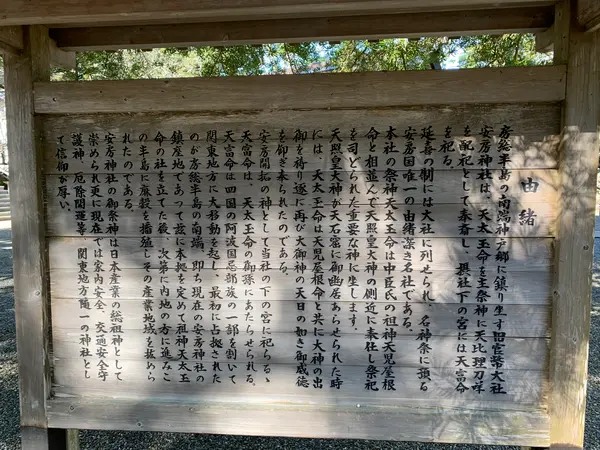 由緒
房総半島の南端神戸郷に鎮り坐す旧官幣大社
安房神社は、天太玉命を主祭神に天比理刀咩命
を配祀として奉斎し、摂社下の宮には天富命
を祀る。
延喜の制には大社に列せられ、名神祭に預る
安房国唯一の由緒深き名社である。
本社の祭神天太玉命は中臣氏の祖神天児屋根
命と相並んで天照皇大神の側近に奉仕し祭祀
を司どられた重要な神に坐します。
天照皇大神が天石窟に御幽居あらせられた時
には、天太玉命は天児屋根命と共に大神の出
御を祷り遂に再び大御神の天日の如き御威徳
を仰ぎ来られたのである。
安房開拓の神として当社の下の宮に祀らるゝ
天富命は、天太玉命の御孫にあたらせられる。
天富命は四国の阿波国忌部族の一部を割いて
関東地方に大移動を起し、最初に占拠された
のが房総半島の南端、即ち現在の安房神社の
鎮座地であって茲に本拠を定めて祖神天太玉
命の社を立てた後、次第に内地の方に進みこ
の半島に麻穀を播殖しその産業地域を拡めら
れたのである。
安房神社の御祭神は日本産業の総祖神として
崇められ更に現在では家内安全、交通安全守
護神、厄除開運等、関東地方随一の神社とし
て信仰が厚い。